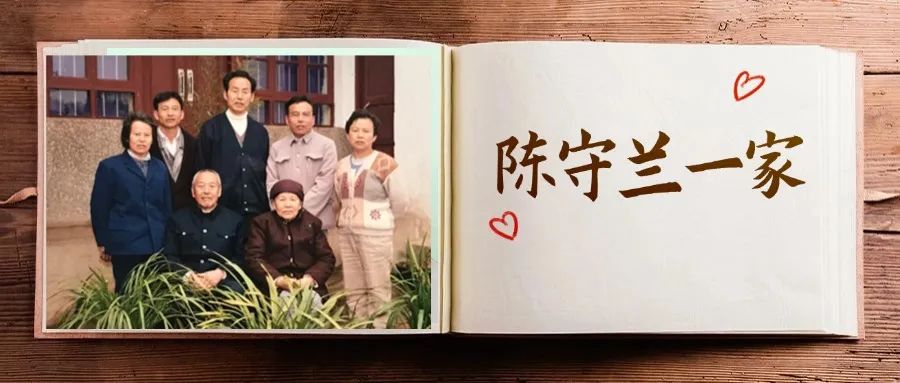 陈守兰一家